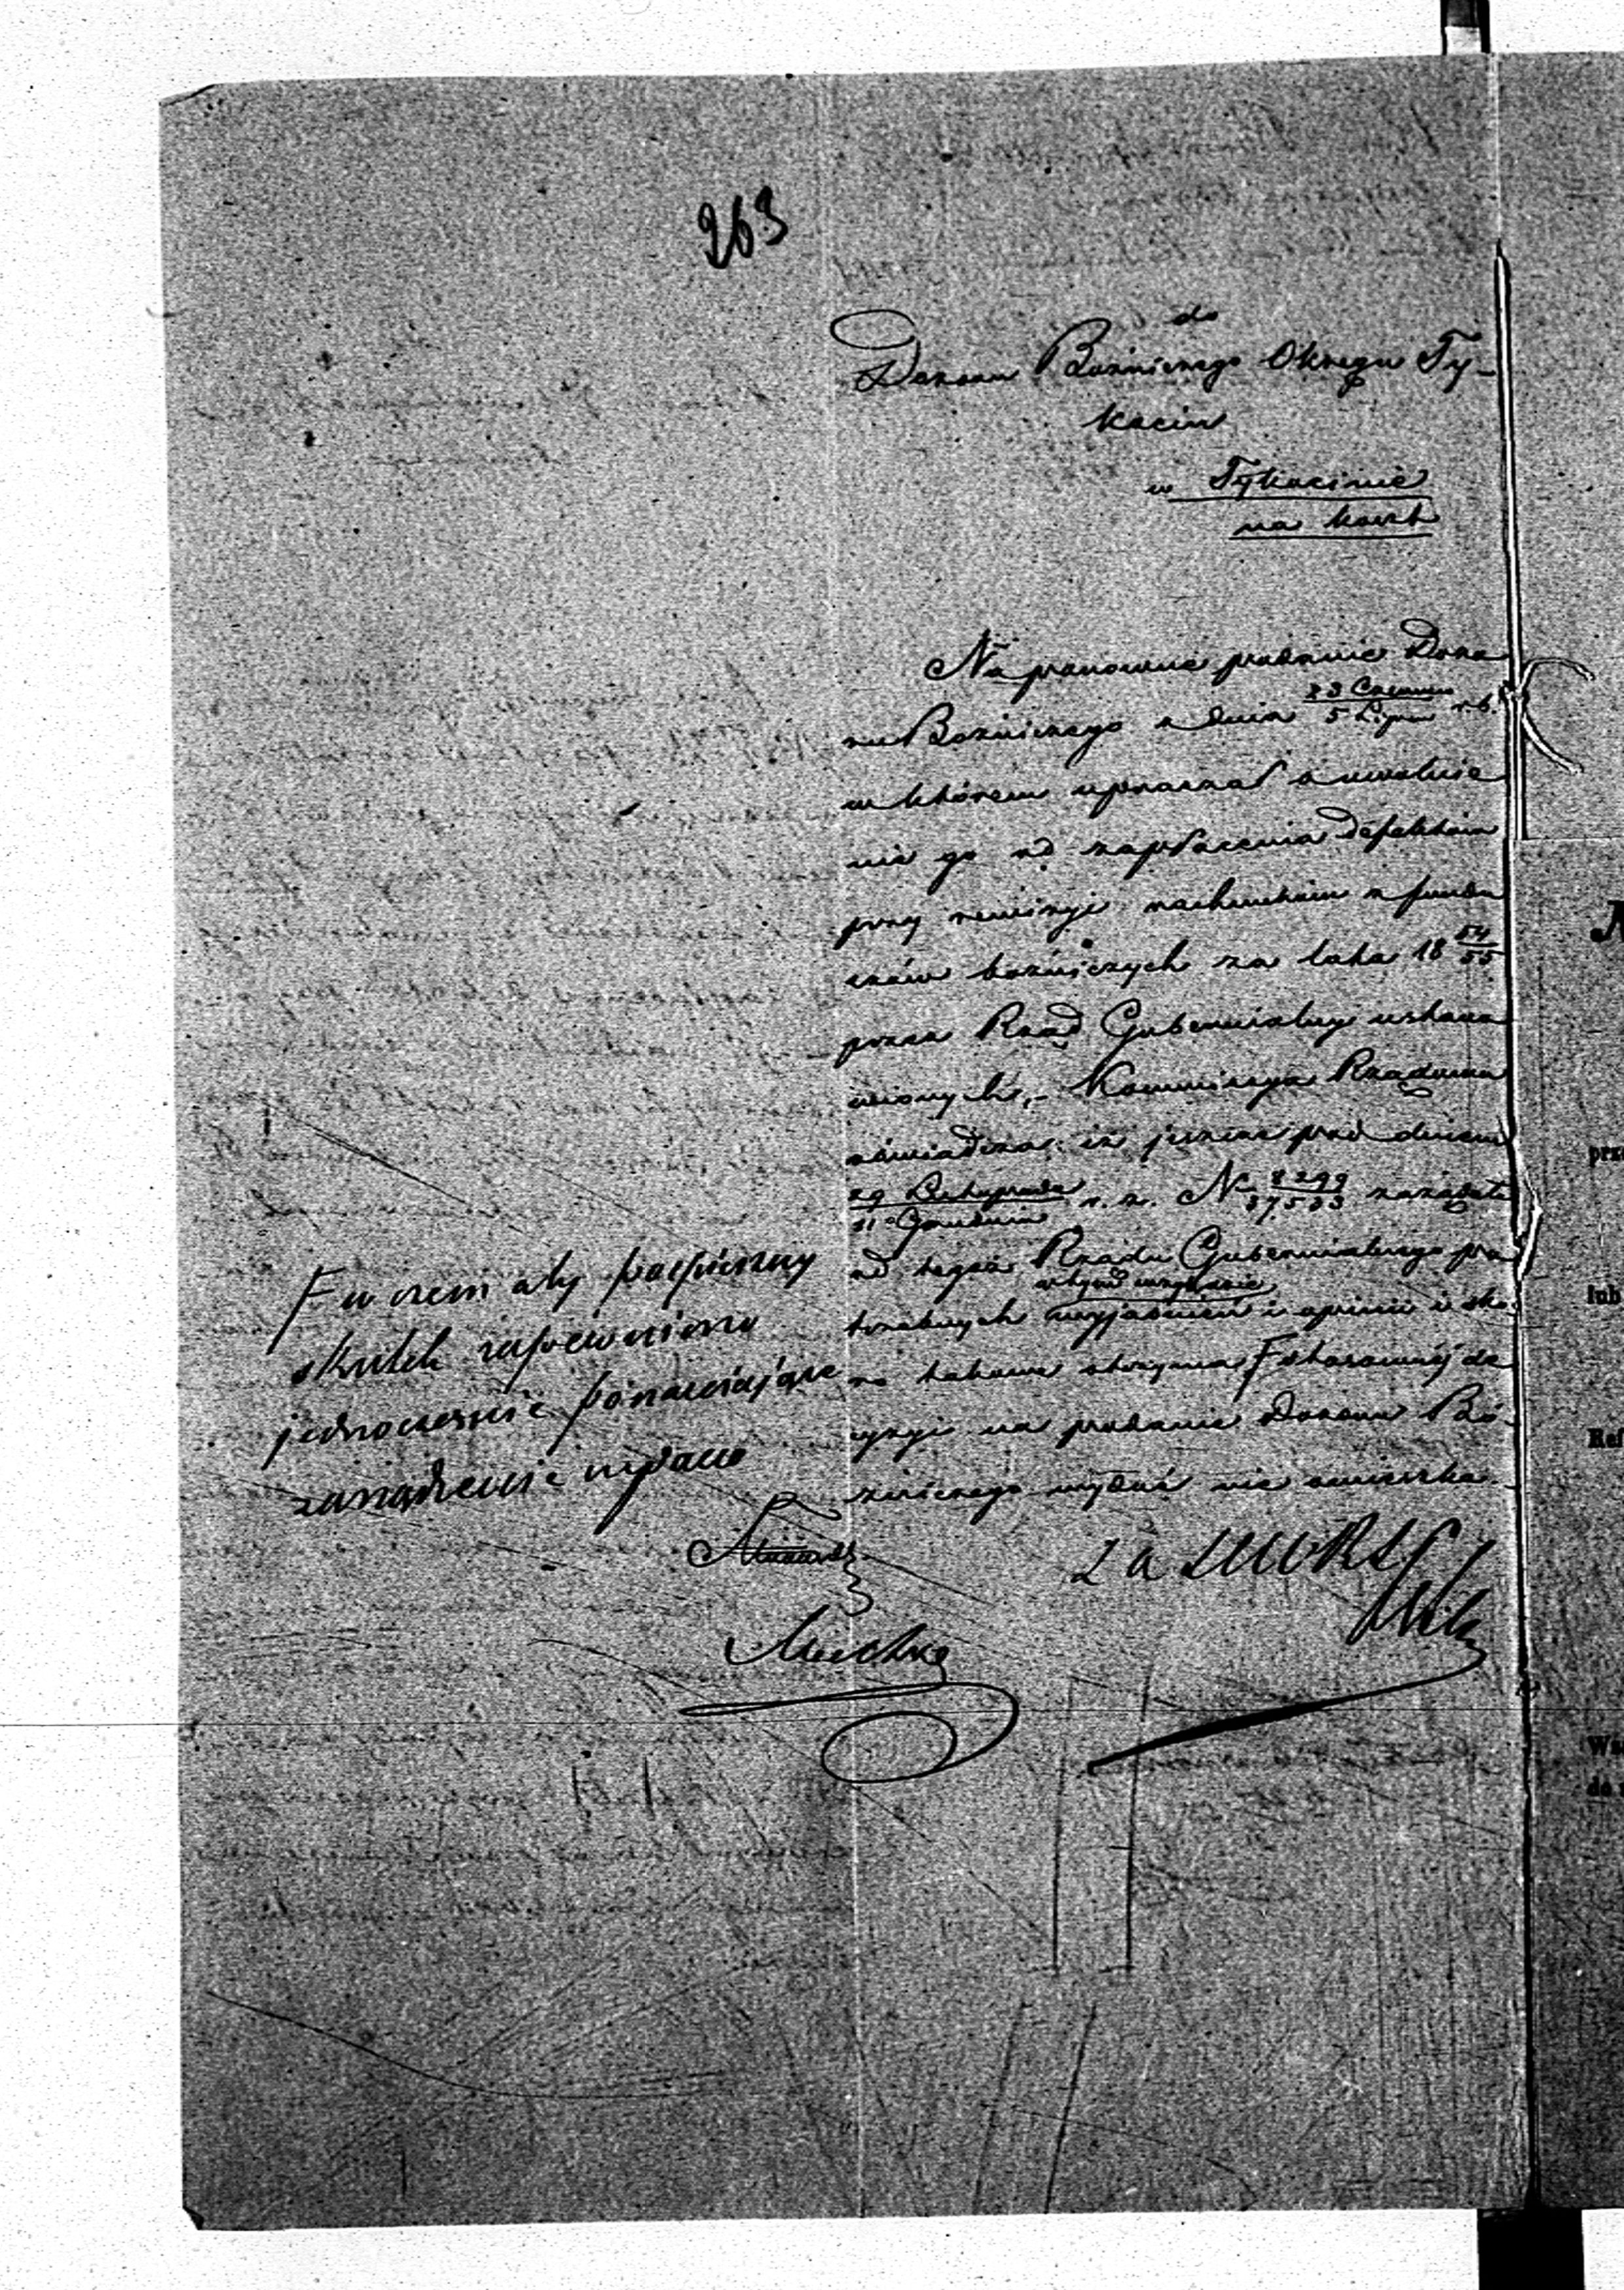 263
do
Dozoru Bóźniczego Okręgu Ty-
kocin
w Tykocinie
na koszt
Na ponowne podanie Dozo
ru Bóźniczego z dnia 23 Czerwca / 5 Lipca r. b.
w którem upraszał o uwolnie
nie go od zapłacenia defektów
przy rewizyi rachunków z fundu
szów bóźniczych za lata 18 54/55
przez Rząd Gubernialny ustano
wionych, - Kommissya Rządowa
oświadcza iż jeszcze pod dniem
29 Listopada / 11 Grudnia r. z. N 8299/37,583 zażądała
od tegoż Rządu Gubernialnego po
w tym względzie
trzebnych wyjaśnień i opinii i sko
ro takowe otrzyma F stosownéj de
cyzyi na podanie Dozoru Bó
źniczego wydać nie omieszka.
F w czem aby pospieszny
skutek zapewniono
jednocześnie ponawiające
zarządzenie wydano